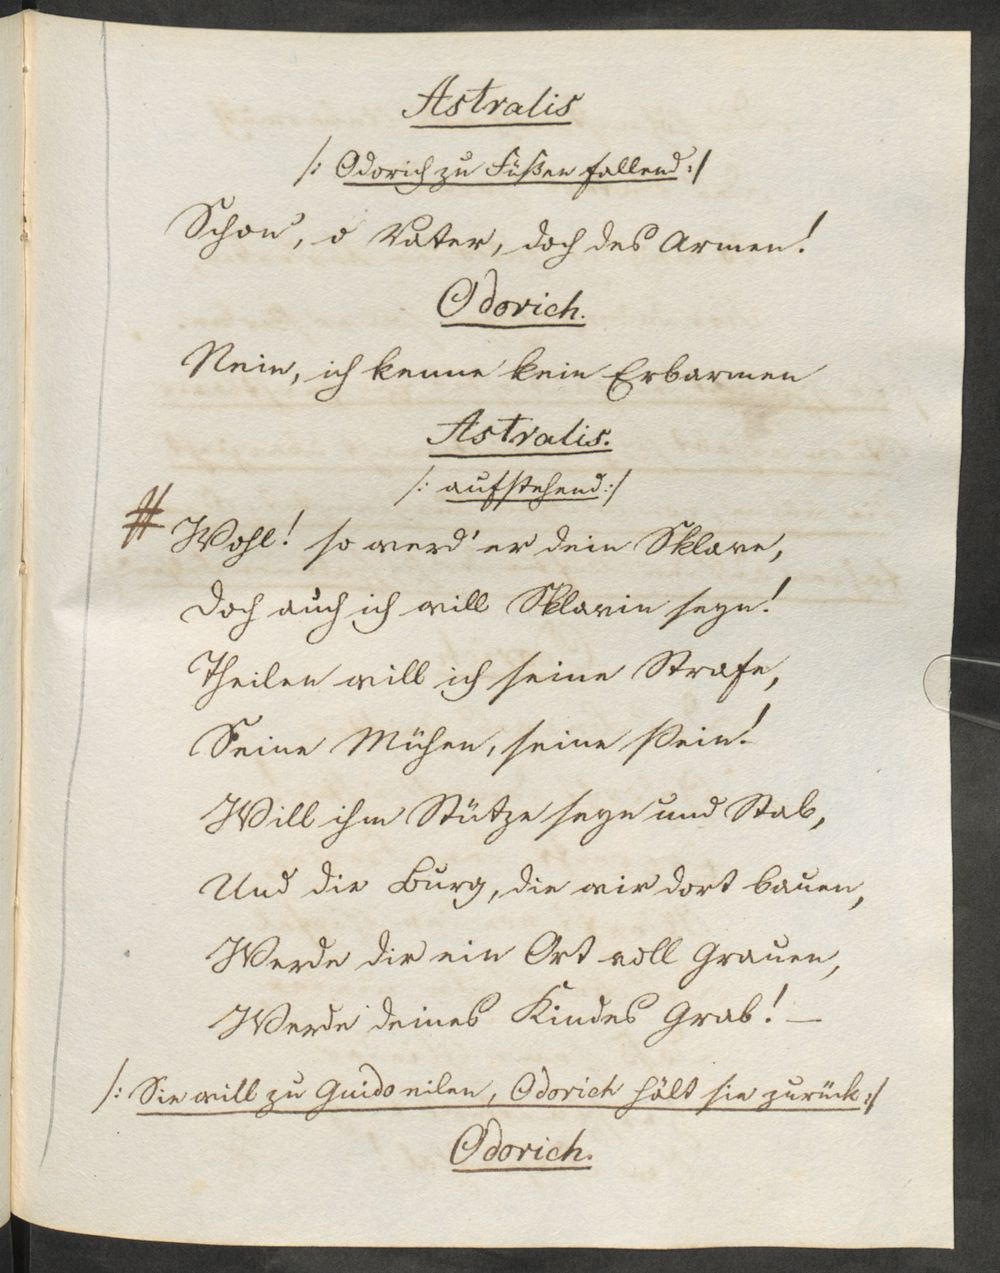 Astralis
/: Odorich zu Füßen fallend :/
Schon', o Vater, doch des Armen!
Odorich.
Nein, ich kenne kein Erbarmen
Astralis.
/: aufstehend :/
# Wohl! so werd' er dein Sklave,
Doch auch ich will Sklavin seyn!
Theilen will ich seine Strafe,
Seine Mühen, seine Pein!
Will ihm Stütze seyn und Stab,
Und die Burg, die wir dort bauen,
Werde dir ein Ort voll Grauen,
Werde deines Kindes Grab! —
/: Sie will zu Guido eilen, Odorich hält sie zurück :/
Odorich.